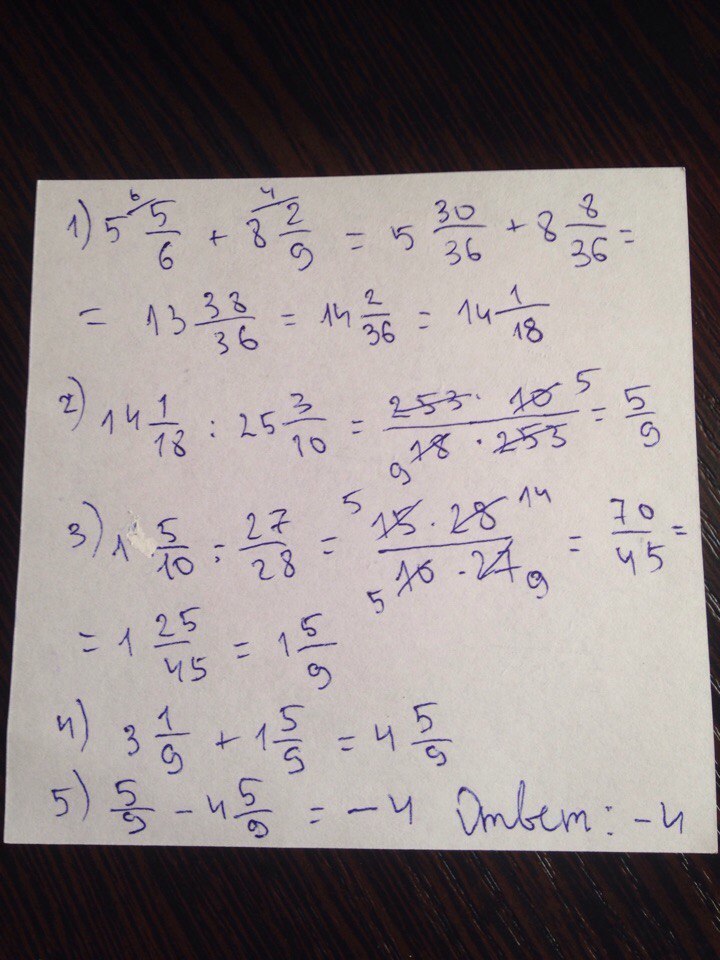 1) 5 5/6 (6) + 8 2/9 (4) = 5 30/36 + 8 8/36 =
= 13 38/36 = 14 2/36 = 14 1/18
2) 14 1/18 : 25 3/10 = 253 · 10 5 / 9 18 · 253 = 5/9
3) 1 5/10 : 27/28 = 5 15 · 28 14 / 5 10 · 27 9 = 70/45 =
= 1 25/45 = 1 5/9
4) 3 1/9 + 1 5/9 = 4 5/9
5) 5/9 - 4 5/9 = -4 Ответ: -4